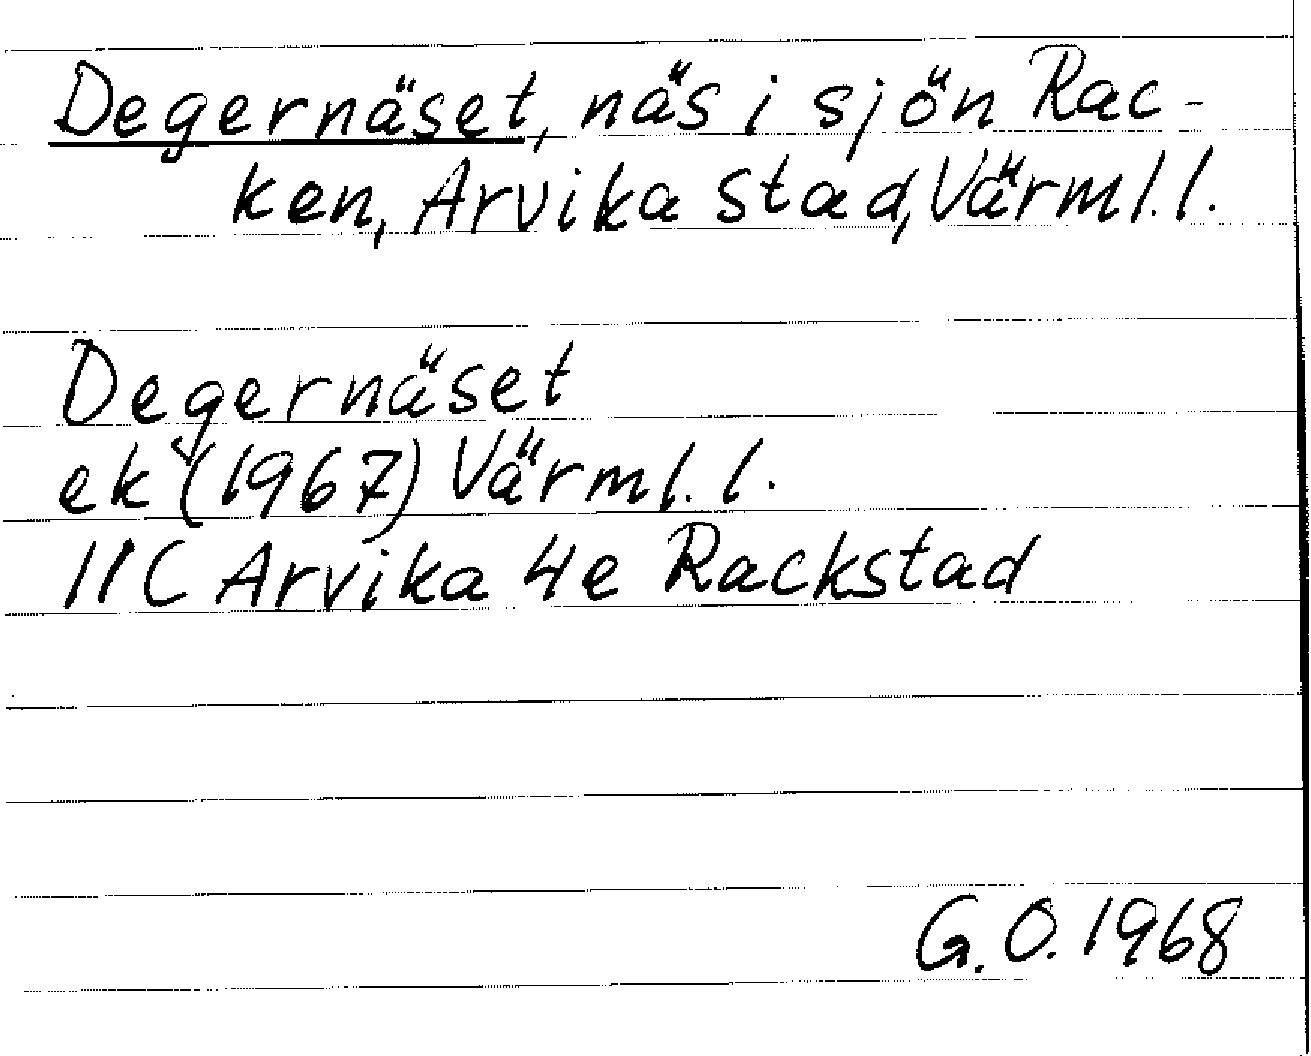 Degernäset, näs i sjön Rac-
ken, Arvika stad, Värml. l.
Degernäset
ek (1967) Värml. l.
11C Arvika 4e Rackstad
G. O. 1968